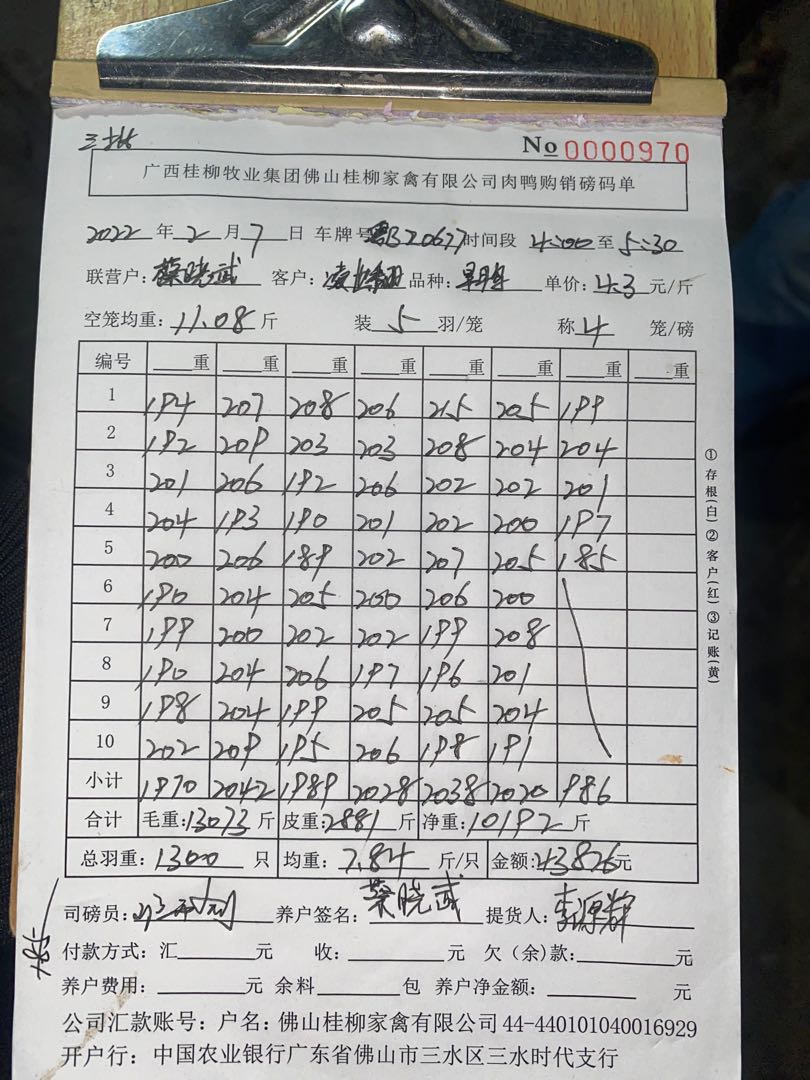 No 0000970
广西桂柳牧业集团佛山桂柳家禽有限公司肉鸭购销磅码单
2022 年 2 月 7 日 车牌号 B20677 时间段 4:00 至 5:30
联营户: 蔡晓武 客户: 品种: 单价: 4.3 元/斤
空笼均重: 11.08 斤 装 5 羽/笼 称 4 笼/磅
编号 重 重 重 重 重 重 重 重
1 194 207 208 206 215 205 199
2 192 209 203 203 208 204 204
3 201 206 192 206 202 202 201
4 204 193 190 201 202 200 197
5 200 206 189 202 207 205 185
6 190 204 205 200 206 200
7 199 200 202 202 199 208
8 190 204 206 197 196 201
9 198 204 199 205 205 204
10 202 209 195 206 198 191
小计 1970 2042 1989 2028 2038 2020 986
合计 毛重: 13073 斤 皮重: 2881 斤 净重: 10192 斤
总羽重: 1300 只 均重: 7.84 斤/只 金额: 43826 元
司磅员: 养户签名: 蔡晓武 提货人: 李源辉
付款方式: 汇 元 收: 元 欠(余)款: 元
养户费用: 元 余料 包 养户净金额: 元
公司汇款账号: 户名: 佛山桂柳家禽有限公司 44-440101040016929
开户行: 中国农业银行广东省佛山市三水区三水时代支行
①存根(白)②客户(红)③记账(黄)